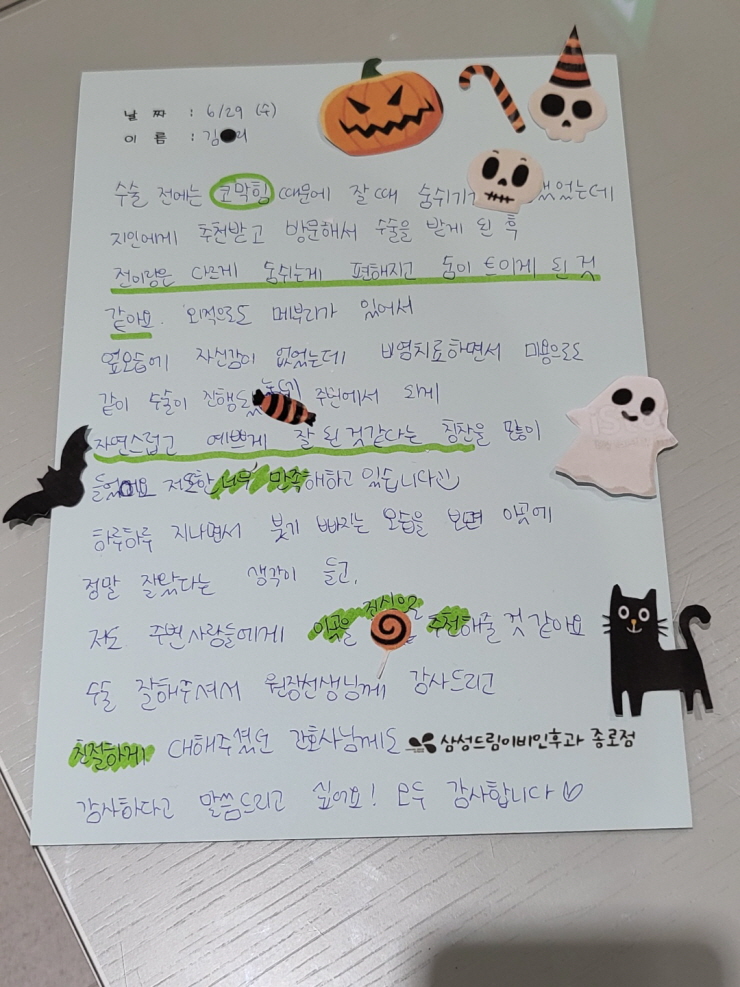 날 짜 : 6/29 (수)
이 름 : 김●리
수술 전에는 코막힘 때문에 잘 때 숨쉬기가 했었는데
지인에게 추천받고 방문해서 수술을 받게 된 후
전이랑은 다르게 숨쉬는게 편해지고 숨이 트이게 된 것
같아요. 외적으로도 메부리가 있어서
옆모습에 자신감이 없었는데 비염치료하면서 미용으로도
같이 수술이 진행 주변에서 되게
자연스럽고 예쁘게 잘 된 것같다는 칭찬을 많이
들었어요 저또한 너무 만족해하고 있습니다
하루하루 지나면서 붓기 빠지는 모습을 보면 이곳에
정말 잘왔다는 생각이 들고,
저도 주변사람들에게 이곳을 추천해줄 것 같아요
수술 잘해주셔서 원장선생님께 감사드리고
친절하게 대해주셨던 간호사님께도 삼성드림이비인후과 종로점
감사하다고 말씀드리고 싶어요! 모두 감사합니다♡